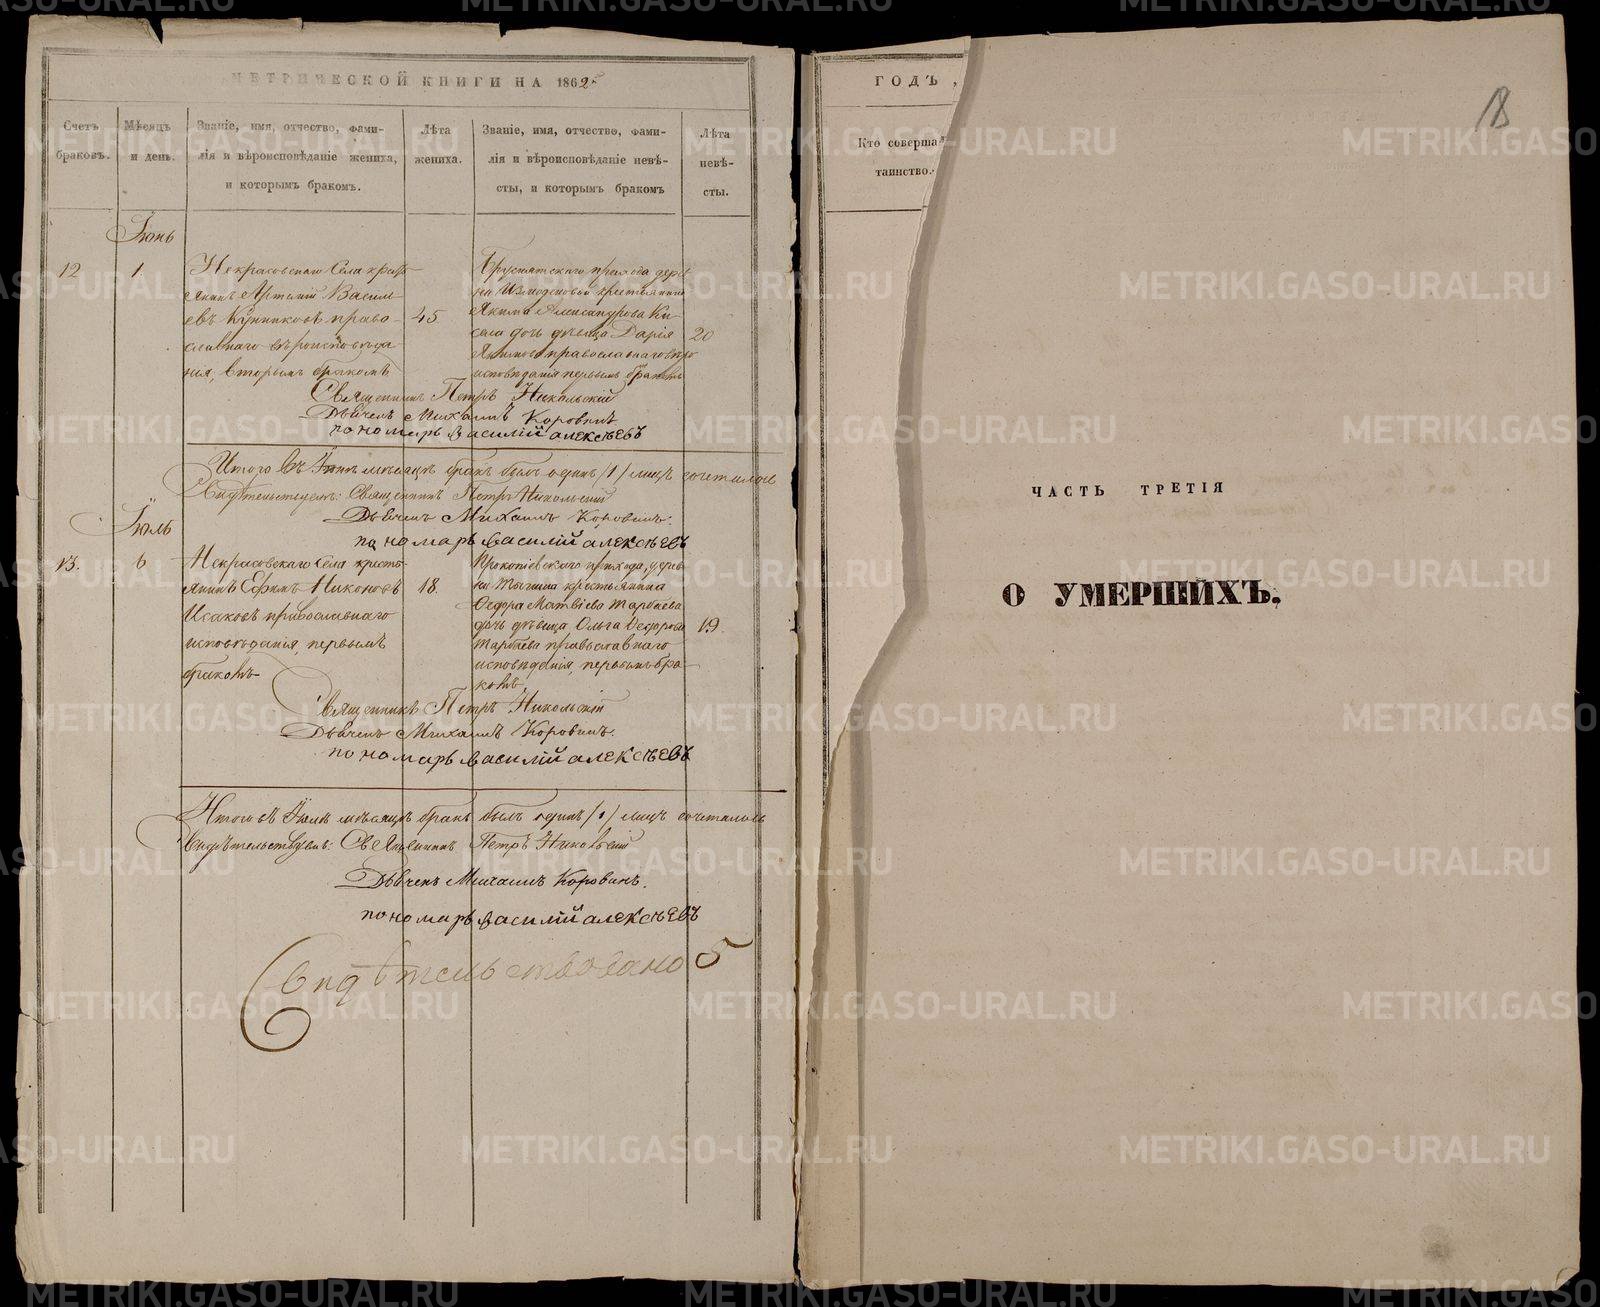 МЕТРИЧЕСКОЙ КНИГИ НА 1862
Счетъ браковъ.
Мѣсяцъ и день.
Званіе, имя, отчество, фами-
лія и вѣроисповѣданіе жениха,
и которымъ бракомъ.
Лѣта
жениха.
Званіе, имя, отчество, фами-
лія и вѣроисповѣданіе невѣ-
сты, и которымъ бракомъ
Лѣта
невѣ-
сты.
Іюнь
12
1
Некрасовскаго Села кресть-
янинъ Артемій Василь-
евъ Кунниковъ право-
славнаго вѣроисповѣда
нія, вторымъ бракомъ
45
Бруснятскаго прихода дерев
ни Измоденовой крестьянина
Якима Александрова Ки-
села дочь дѣвица Дарія
Якимова православнаго вѣро
исповѣданія первымъ бракомъ
20
Священникъ Петръ Никольскій
Дьячекъ Михаилъ Коровинъ
пономарь василій алексѣевъ
Итого въ Іюнѣ мѣсяцѣ бракъ былъ одинъ /1/ лицъ сочеталось
Свидѣтельствуемъ: Священникъ Петръ Никольскій
Дьячекъ Михаилъ Коровинъ.
пономарь василій алексѣевъ
Іюль
13.
6
Некрасовскаго Села кресть-
янинъ Ефимъ Никоновъ
Исаковъ православнаго
исповѣданія, первымъ
бракомъ
18.
Прокопіевскаго прихода, дерев
ни крестьянина
Ѳедора Матвѣева Тарбаева
дочь дѣвица Ольга Ѳедорова
Тарбаева православнаго
исповѣданія, первымъ бра-
комъ
19
Священникъ Петръ Никольскій
Дьячекъ Михаилъ Коровинъ.
пономарь василій алексѣевъ
Итого въ Іюлѣ мѣсяцѣ бракъ былъ одинъ /1/ лицъ сочеталось
Свидѣтельствуемъ: Священникъ Петръ Никольскій
Дьячекъ Михаилъ Коровинъ.
пономарь василій алексѣевъ
Свидѣтельствовано
ГОДЪ,
Кто соверша
таинство.
ЧАСТЬ ТРЕТІЯ
О УМЕРШИХЪ.
METRIKI.GASO-URAL.RU